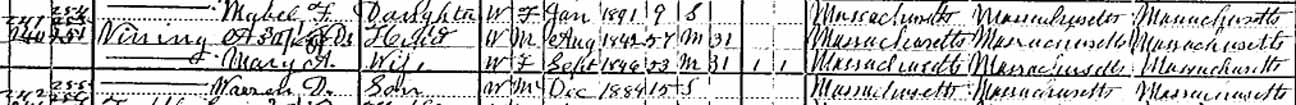 254 Mabel F. Daughter W F Jan 1891 9 S Massachusetts Massachusetts Massachusetts
Vining Head W M Aug 1842 57 M 31 Massachusetts Massachusetts Massachusetts
Mary A. Wife W F Sept 1846 53 M 31 1 1 Massachusetts Massachusetts Massachusetts
242 255 Warren D. Son W M Dec 1884 15 S Massachusetts Massachusetts Massachusetts